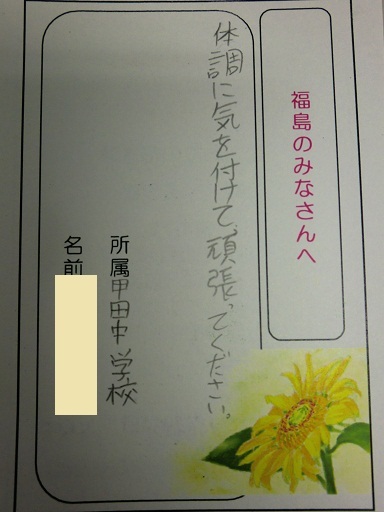 福島のみなさんへ
体調に気を付けて、頑張ってください。
所属 甲田中学校
名前